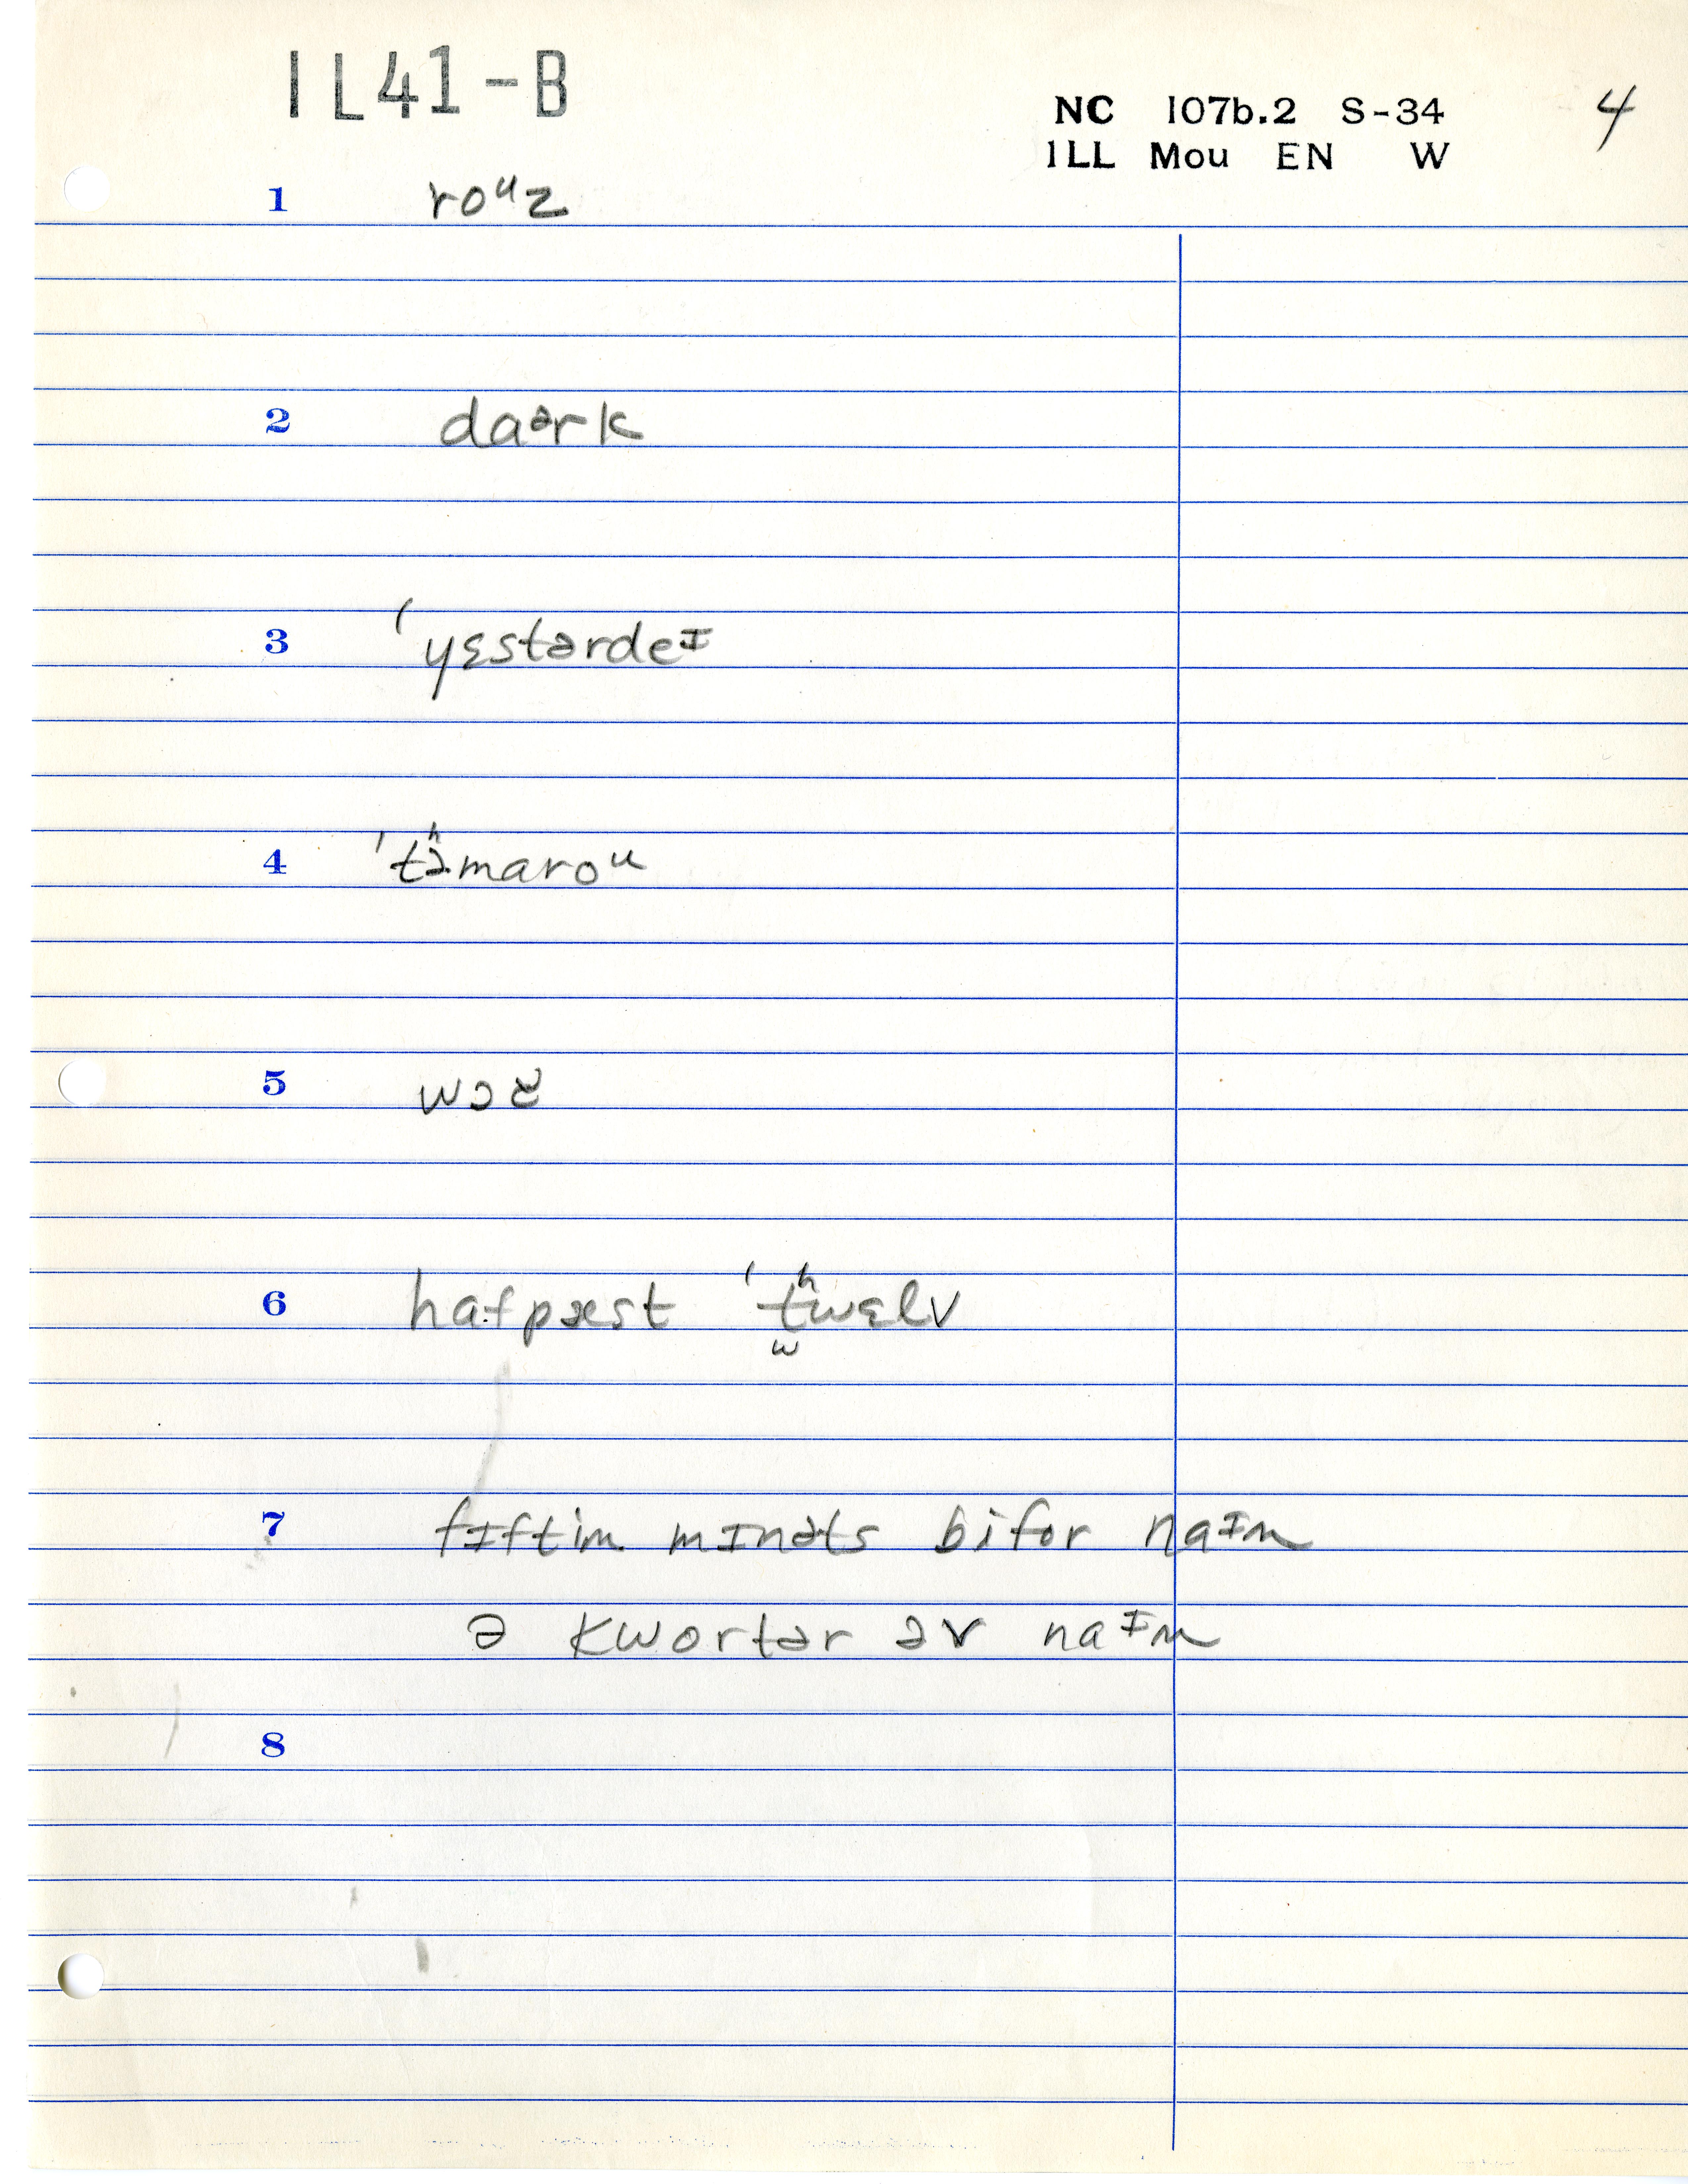 IL41-B
NC 107b.2 S-34
ILL Mou EN W
4
1 roᶸz
2 daᵊrk
3 ˈyɛstərdeᴵ
4 ˈtʰə.maroᵘ
5
6 ha.fpæst ˈtʰw̫ɛlv
7 fɪftin mɪnəts bifor naᴵn
ə kwortər əv naᴵn
8